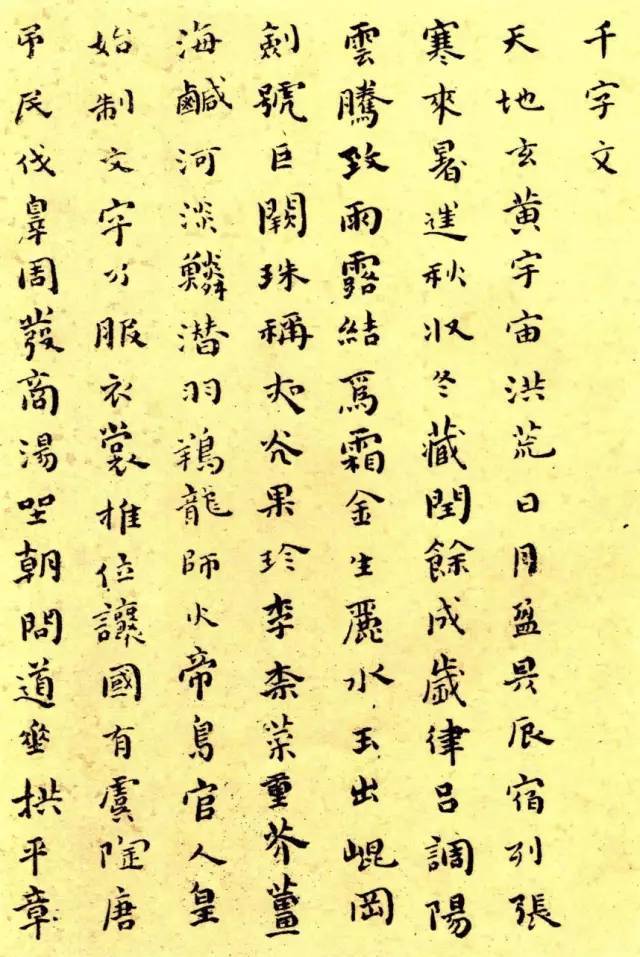 千字文
天地玄黃宇宙洪荒日月盈昃辰宿列張
寒來暑往秋收冬藏閏餘成歲律呂調陽
雲騰致雨露結爲霜金生麗水玉出崐岡
劍號巨闕珠稱夜光果珍李柰菜重芥薑
海鹹河淡鱗潛羽翔龍師火帝鳥官人皇
始制文字乃服衣裳推位讓國有虞陶唐
弔民伐罪周發商湯坐朝問道垂拱平章